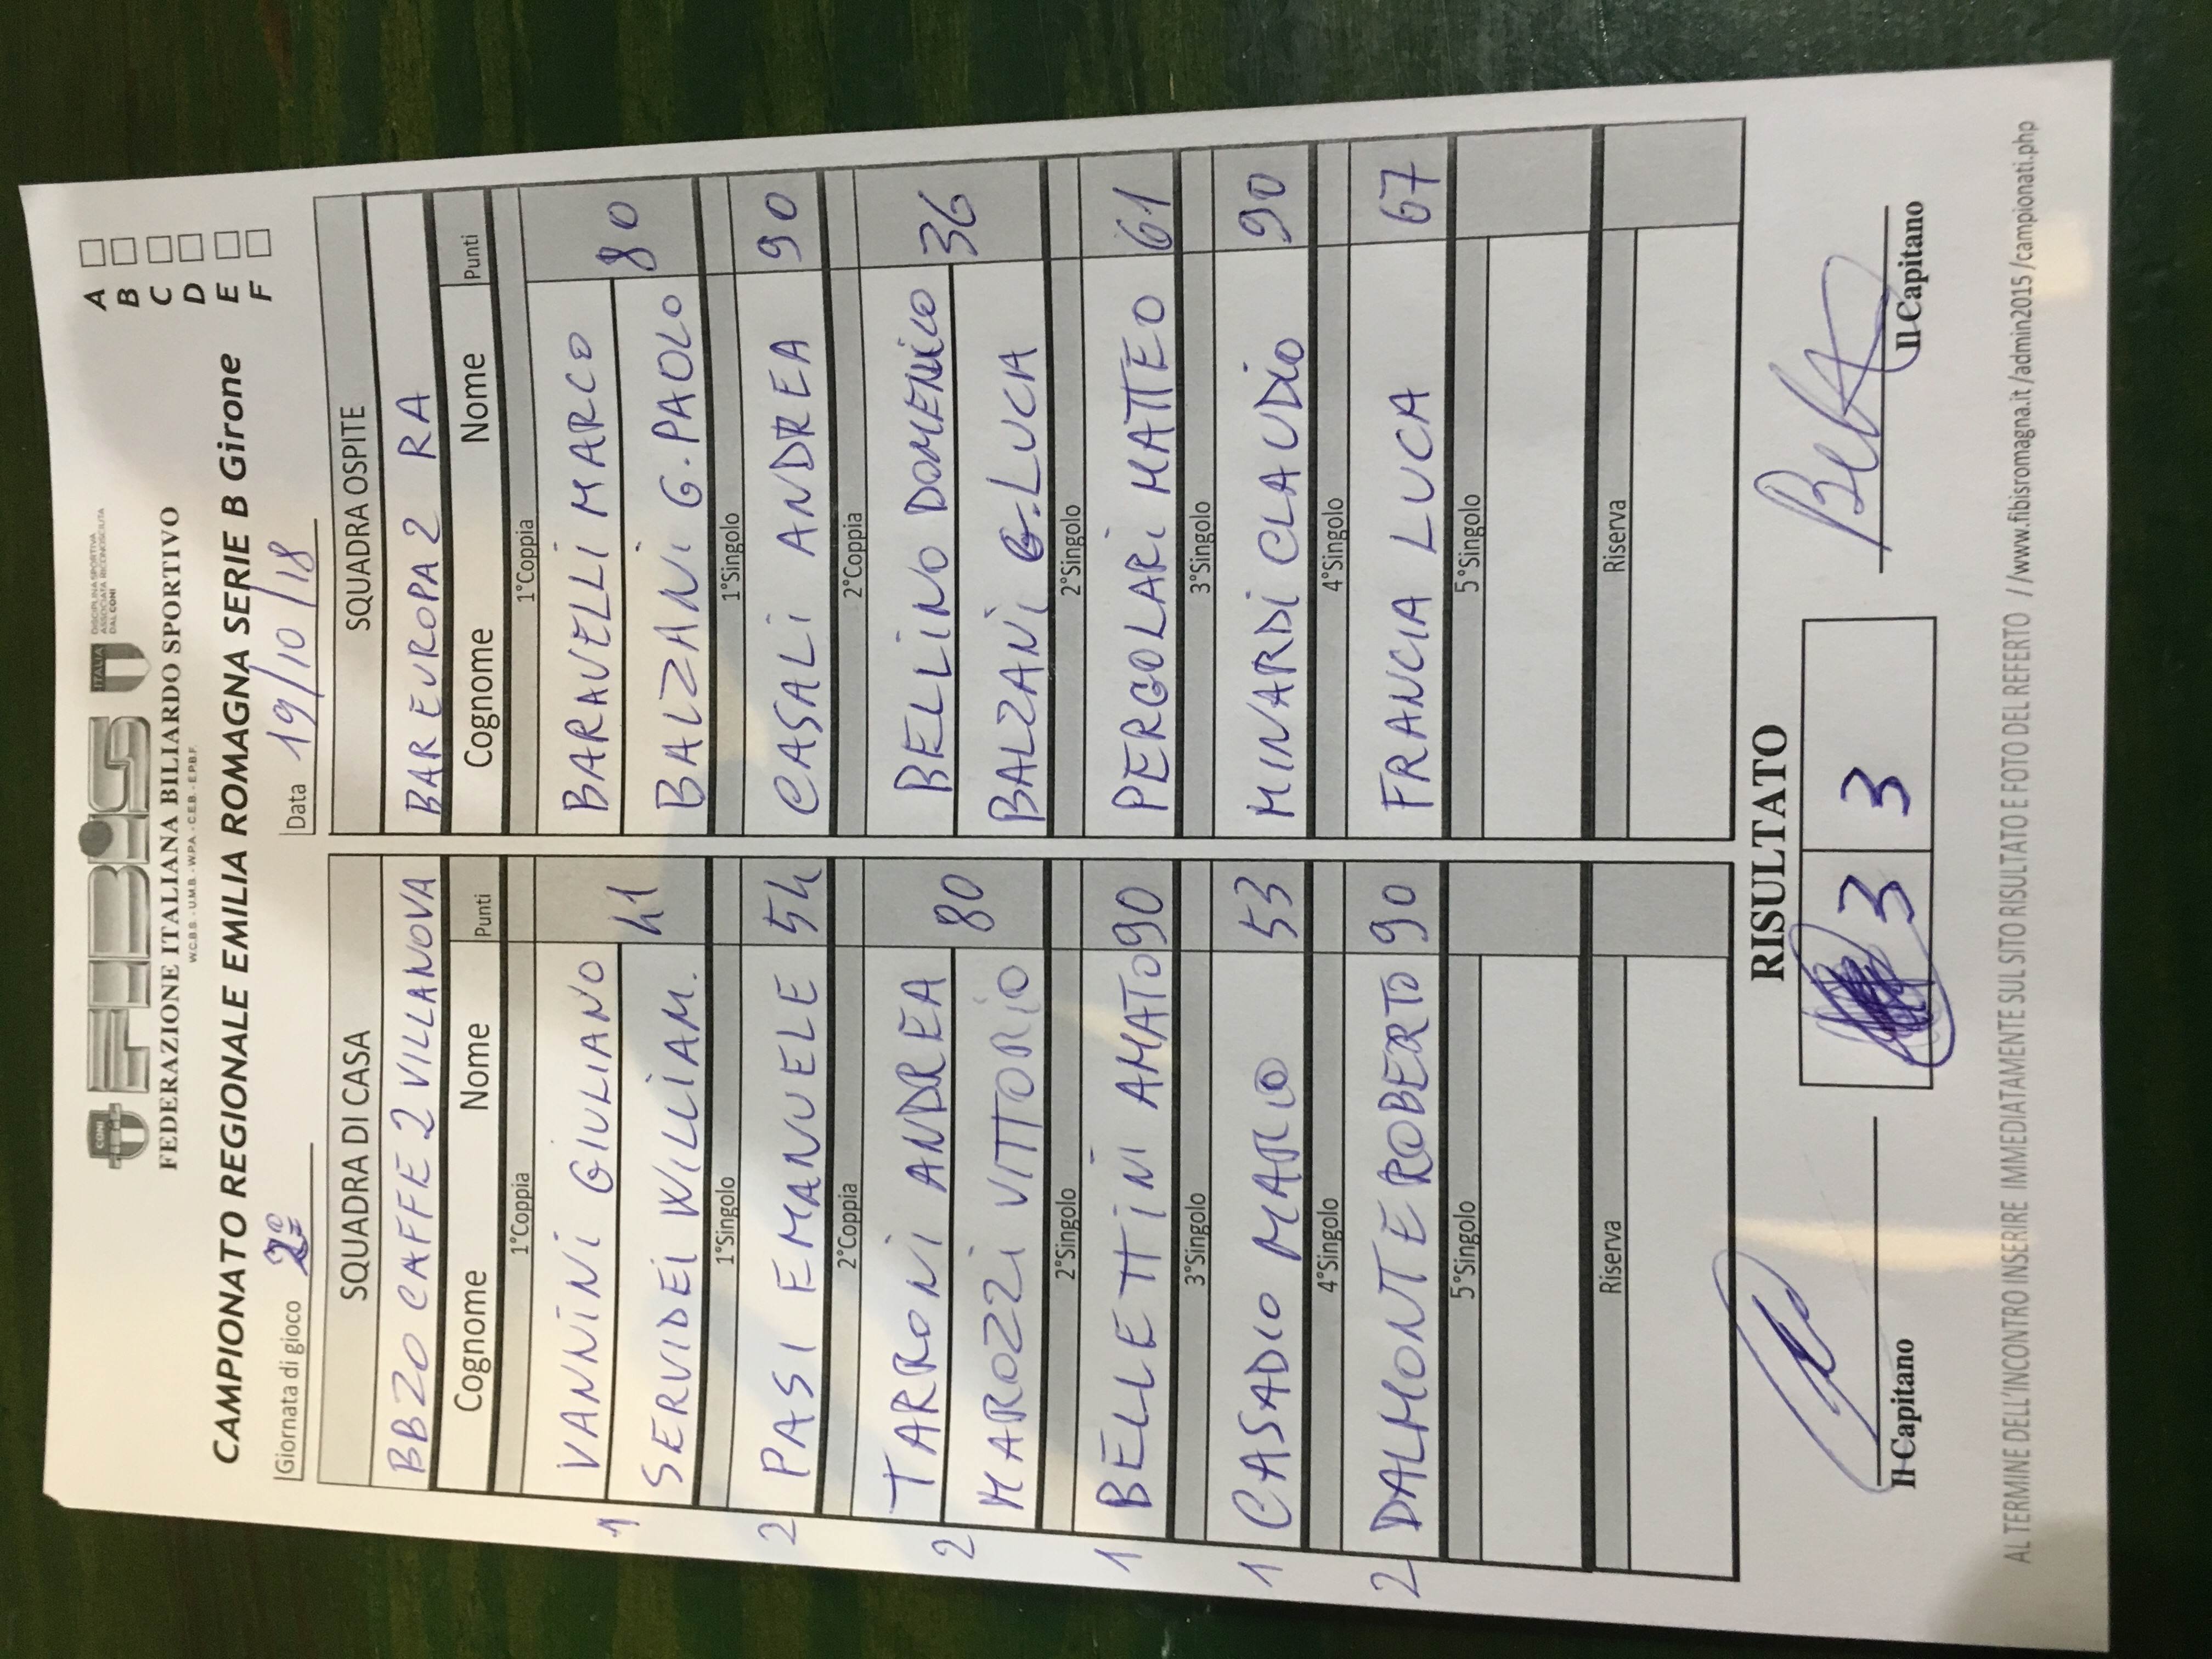 CONI
FIBiS
ITALIA
DISCIPLINA SPORTIVA
ASSOCIATA RICONOSCIUTA
DAL CONI
FEDERAZIONE ITALIANA BILIARDO SPORTIVO
W.C.B.S. - U.M.B. - W.P.A. - C.E.B. - E.P.B.F.
CAMPIONATO REGIONALE EMILIA ROMAGNA SERIE B Girone
A
B
C
D
E
F
Giornata di gioco 2° Data 19/10/18
SQUADRA DI CASA SQUADRA OSPITE
BBZO CAFFE 2 VILLANOVA BAR EUROPA 2 RA
Cognome Nome Punti Cognome Nome Punti
1°Coppia 1°Coppia
1 VANNINI GIULIANO 41 BARAVELLI MARCO 80
SERVIDEI WILLIAM. BALZANI G. PAOLO
1°Singolo 1°Singolo
2 PASI EMANUELE 54 CASALI ANDREA 90
2°Coppia 2°Coppia
2 TARRONI ANDREA 80 BELLINO DOMENICO 36
MAROZZI VITTORIO BALZANI G. LUCA
2°Singolo 2°Singolo
1 BELLETTINI AMATO 90 PERGOLARI MATTEO 61
3°Singolo 3°Singolo
1 CASADIO MARIO 53 MINARDI CLAUDIO 90
4°Singolo 4°Singolo
2 DALMONTE ROBERTO 90 FRANCIA LUCA 67
5°Singolo 5°Singolo
Riserva Riserva
RISULTATO
3 3
Il Capitano Il Capitano
AL TERMINE DELL'INCONTRO INSERIRE IMMEDIATAMENTE SUL SITO RISULTATO E FOTO DEL REFERTO //www.fibisromagna.it/admin2015/campionati.php